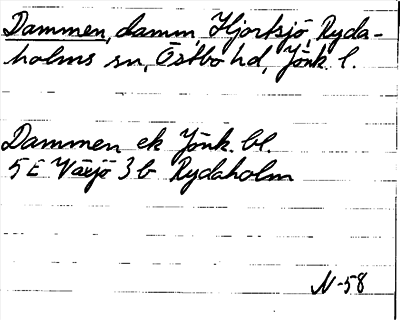 Dammen, damm, Hjortsjö, Ryda-
holms sn, Östbo hd, Jönk. l.
Dammen ek Jönk. bl.
5E Växjö 3b Rydaholm
N-58